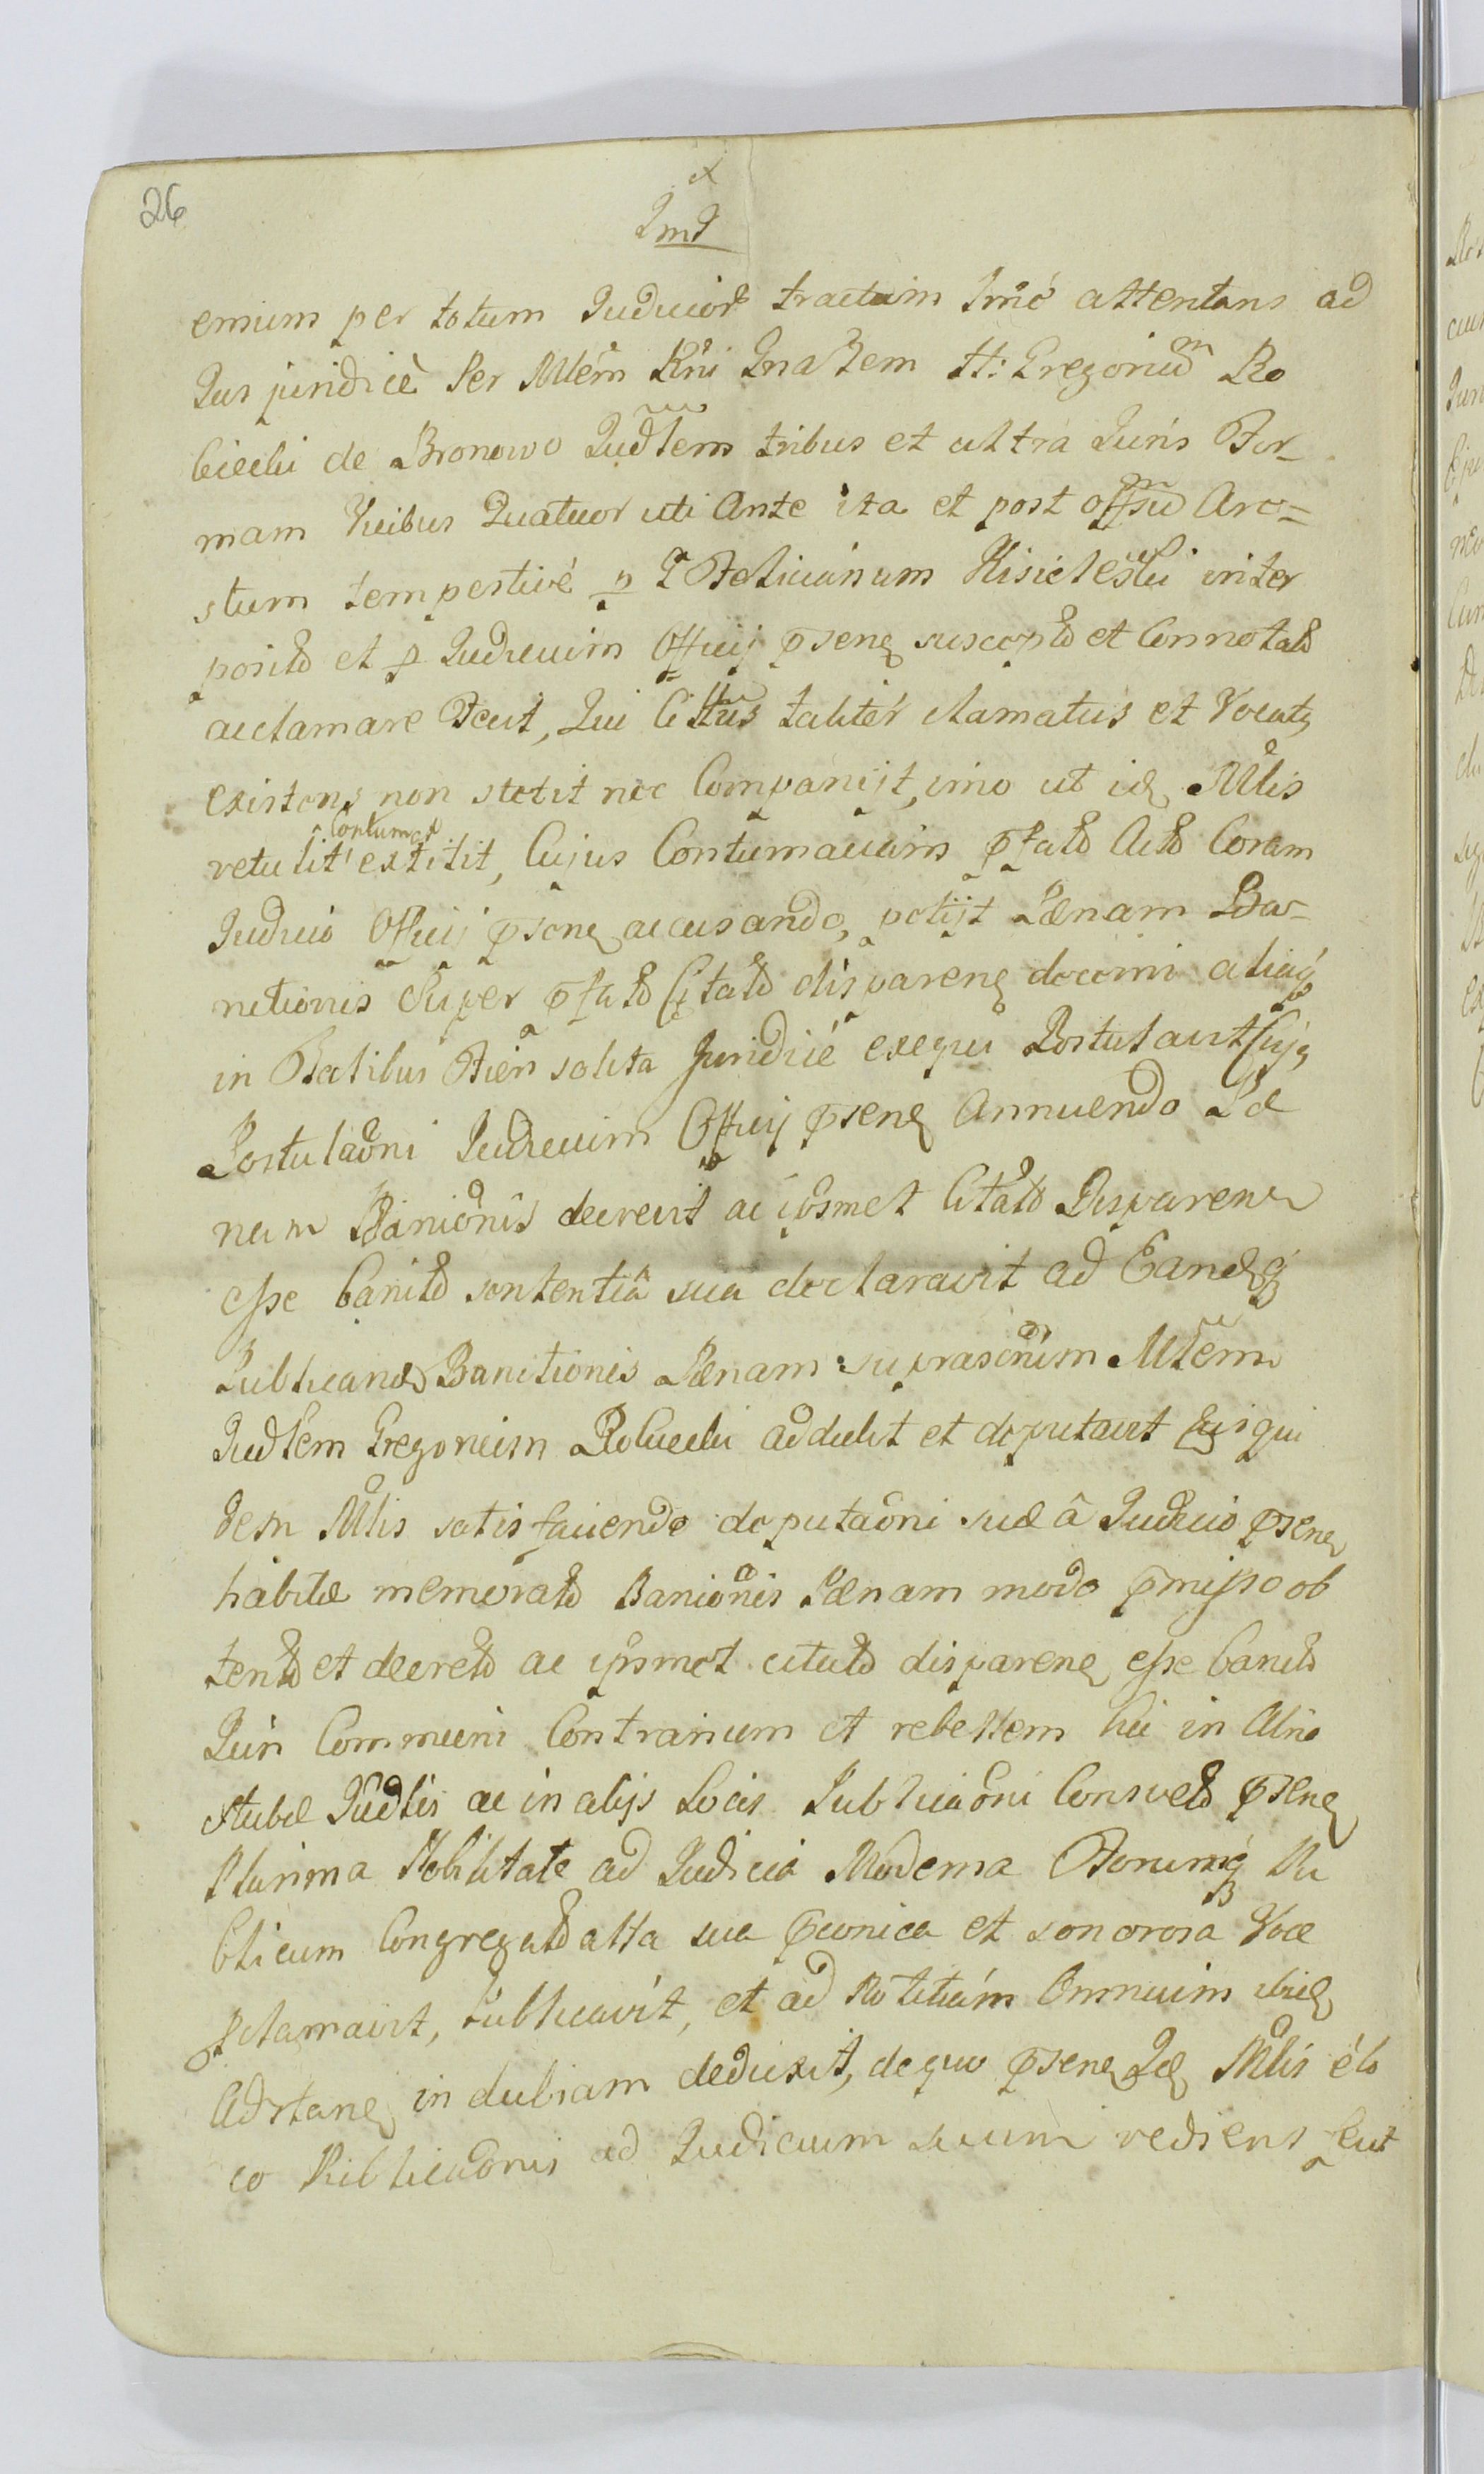 26
x
Imd
emium per totum Judicior tractum Imẽ attentans ad
Jus juridicè Per Mlem Rni Gnalem H: Gregoriũ Ro
biecki de Bronowo Judlem tribus et ultra Juris For-
mam Vicibus Quatuor uti Ante ita et post offsũ Are=
stum tempestivé p G Felicianum Kisieleski inter
positũ et p Judicium Officij psens susceptũ et Connotatũ
acclamare Fecit, Qui Citatus taliter clamatus et Vocatus
existens non stetit nec Comparuijt, imo ut id Mlis
retulit contumax extitit, Cujus Contumaciam pfatũ Actũ Coram
Judicio Officij psens accusando, petijt Pænam Ban-
nitionis Super pfatũ Citatũ disparens decerni aliaq
in Talibus Fieri solita Juridicé exequi Postulavit Cujus
Postulaoni Judicium Officij psens Annuendo Pæ
nam Banionis decrevit ac ipsmet Citatũ Disparen
esse banitũ sententiâ sua declaravit ad Eandq
Publicand Banitionis Pænam suprascrium Mlem
Judlem Gregorium Robiecki addidit et deputavit Quiqui
dem Mlis satisfaciendo deputaoni suæ â Judicio psens
habitæ memoratũ Banionis Pænam modo pmisso ob
tentũ et decretũ ac ipsmet citatũ disparens esse banitũ
Juri Communi Contrarium et rebellem hic in Atrio
stubæ Judlis ac in alijs Locis Publicaoni Consvetũ psens
Plurima Nobilitate ad Judicia Moderna Forumq Pu
blicum Congregatũ alta sua pconica et sonorosa Voce
pclamavit, publicavit, et ad Notitiam Omnium ibid
Adstans in dubiam deduxit, de quo psens Id Mlis é lo
co Publicaonis ad Judicium suum rediens fecit